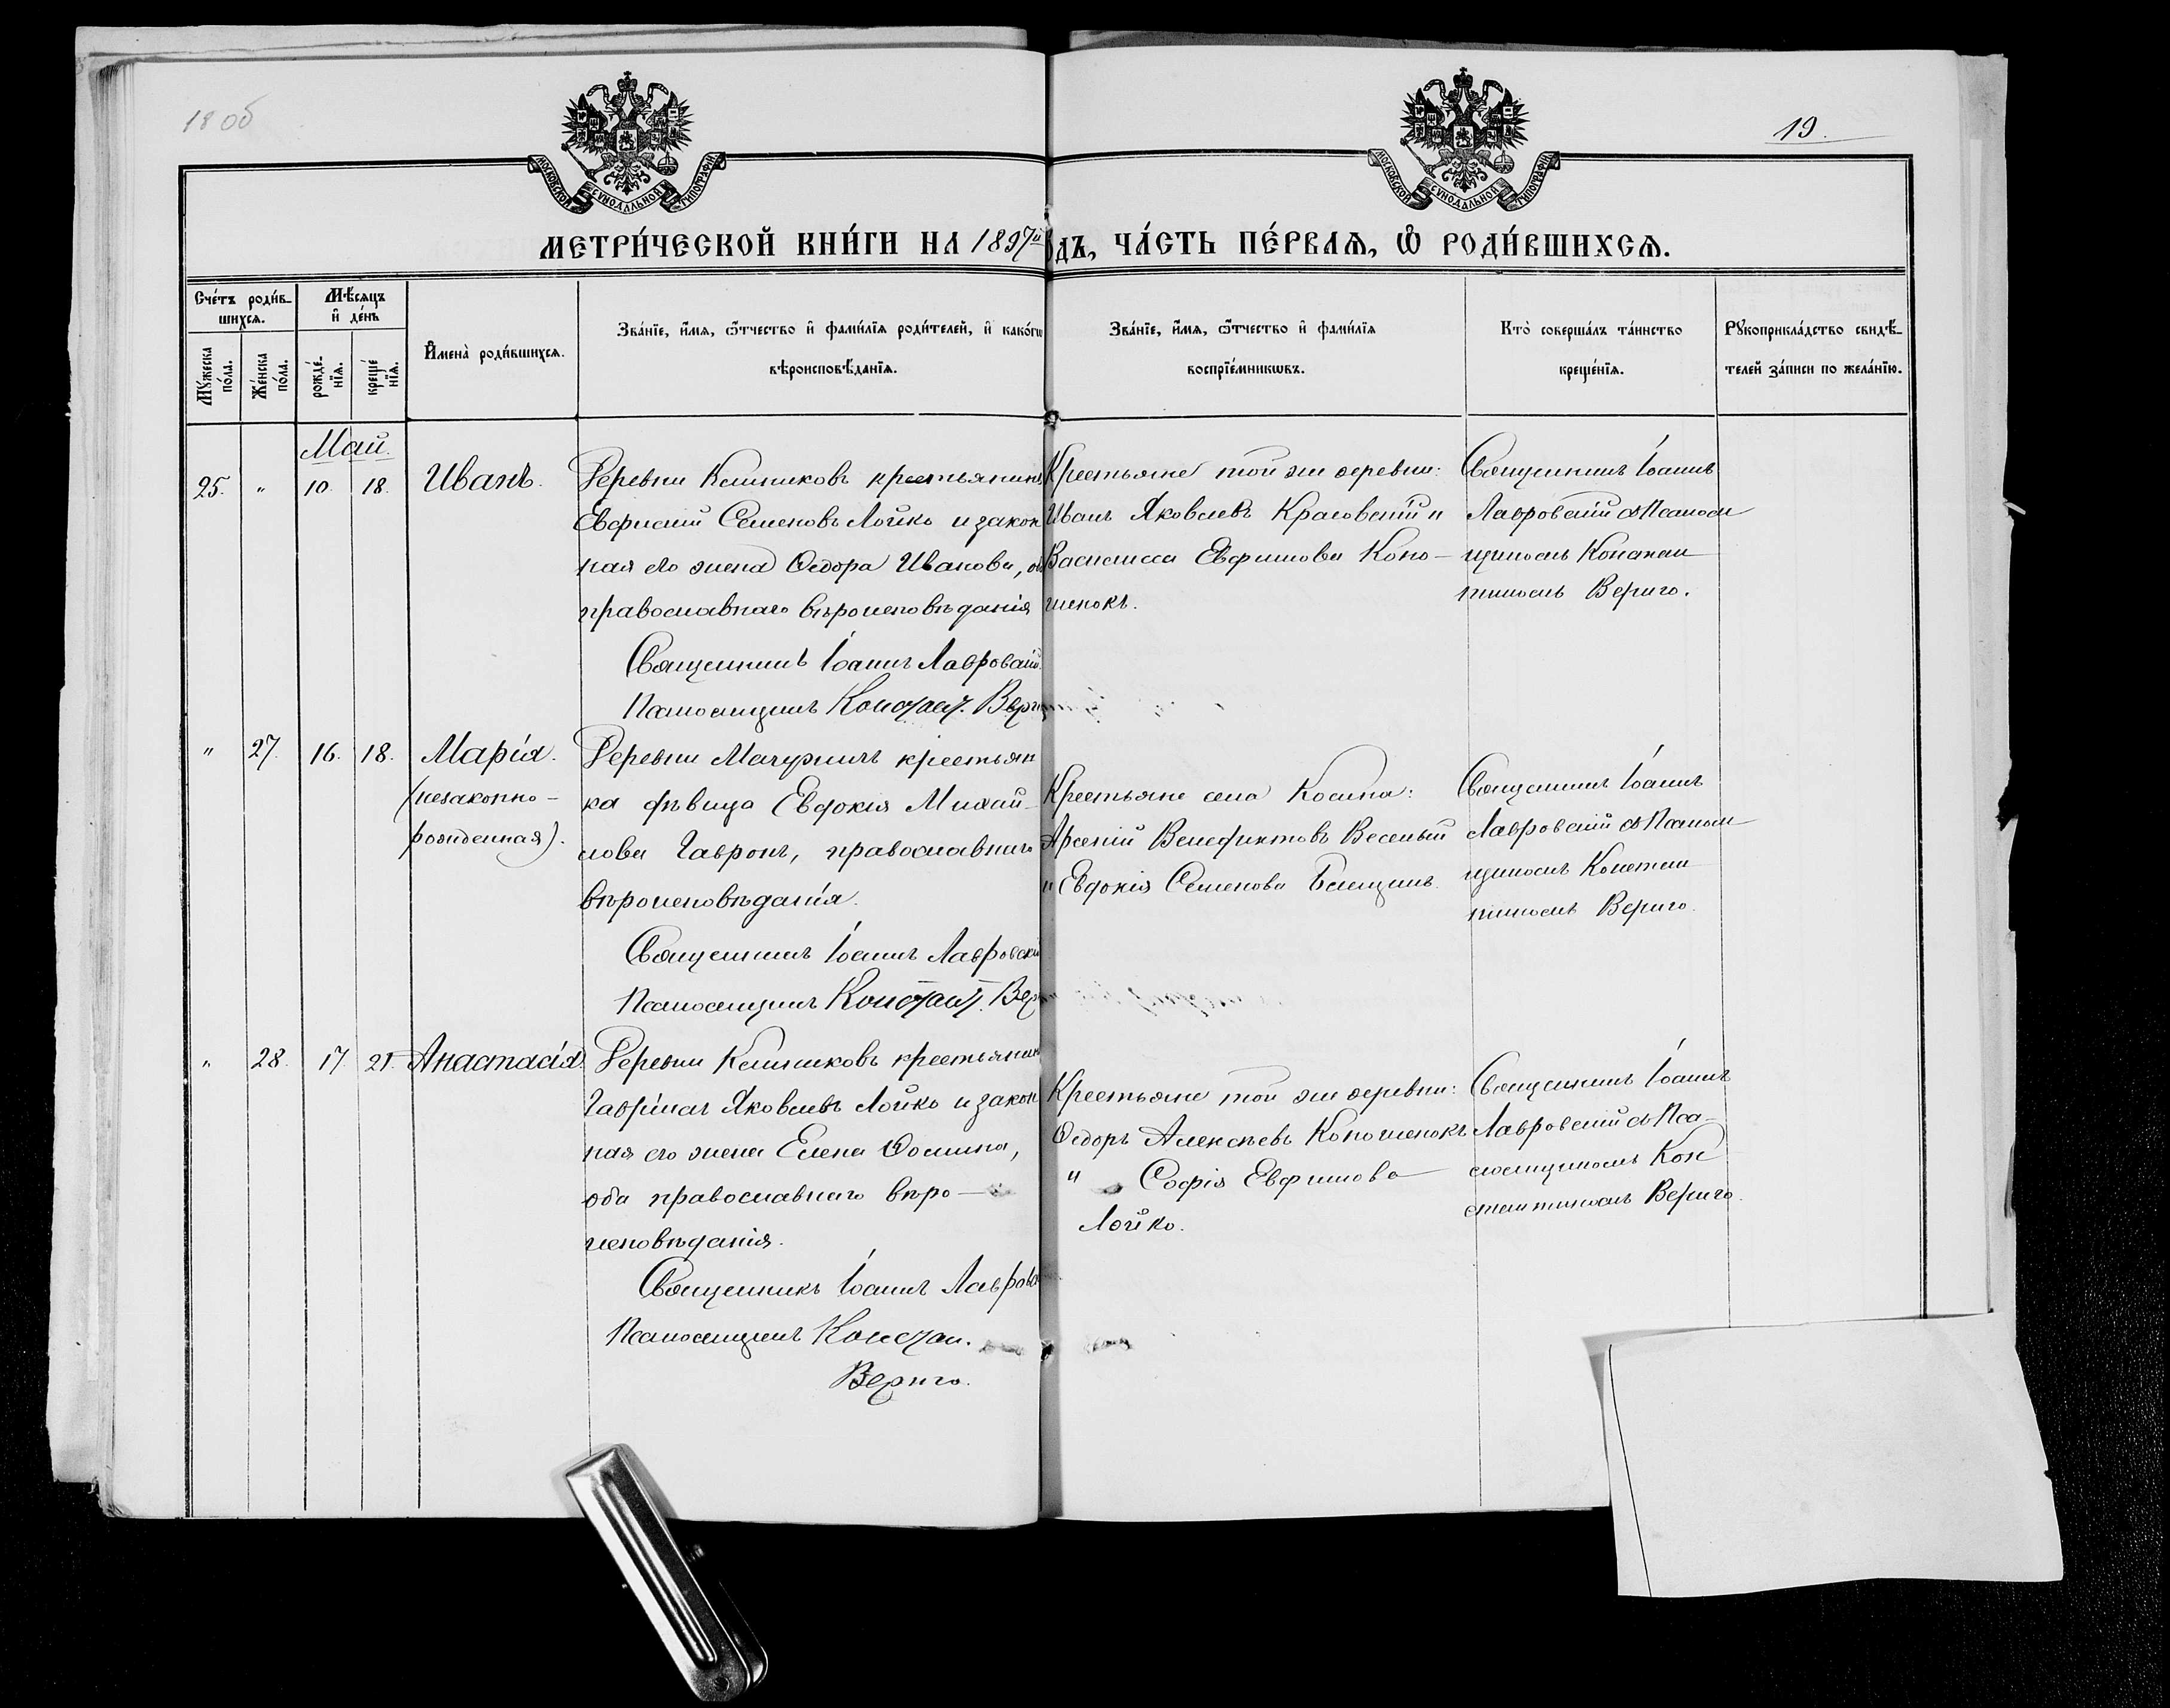 18 об
19.
МОСКОВСКОЙ СѴНОДАЛЬНОЙ ТИПОГРАФІИ
МОСКОВСКОЙ СѴНОДАЛЬНОЙ ТИПОГРАФІИ
МЕТРИ́ЧЕСКОЙ КНИ́ГИ НА 1897й
ОДЪ, ЧА́СТЬ ПЕ́РВАѦ, Ѽ РОДИ́ВШИХСѦ.
Сче́тъ роди́в-
шихсѧ.
Мѣ́сѧцъ
и҆ де́нь
Му́жеска
по́ла.
Же́нска
по́ла.
рожде́-
нїѧ.
креще́
нїѧ.
И҆мена̀ роди́вшихсѧ.
Зва́нїе, и҆́мѧ, ѻ҆́тчество и҆ фами́лїѧ роди́телей, и҆ како́гѡ
вѣроисповѣ́данїѧ.
Зва́нїе, и҆́мѧ, ѻ҆́тчество и҆ фами́лїѧ
воспрїе́мникѡвъ.
Кто̀ соверша́лъ та́инство
креще́нїѧ.
Рꙋкоприкла́дство свидѣ́-
телей за́писи по жела́нїю.
Май.
25. " 10. 18. Иванъ.
Деревни Клишковъ крестьянинъ
Евфимій Семеновъ Лойко и закон
ная его жена Ѳедора Иванова, об
православнаго вѣроисповѣданія
Священникъ Іоаннъ Лавровскій.
Псаломщикъ Констант. Вериг
Крестьяне той же деревни:
Иванъ Яковлевъ Красовскій и
Василисса Евфимова Коно-
шенокъ.
Священникъ Іоаннъ
Лавровскій съ Псалом
щикомъ Констан
тиномъ Вериго.
" 27. 16. 18. Марія.
(незаконно-
рожденная).
Деревни Мачулищъ крестьян
ка дѣвица Евдокія Михай-
лова Гавронъ, православнаго
вѣроисповѣданія.
Священникъ Іоаннъ Лавровскій
Псаломщикъ Констант. Вер
Крестьяне села Косина:
Арсеній Венедиктовъ Веселый
и Евдокія Семенова
Священникъ Іоаннъ
Лавровскій съ Псалом
щикомъ Констан
тиномъ Вериго.
" 28. 17. 21. Анастасія.
Деревни Клишковъ крестьянин
Гавріилъ Яковлевъ Лойко и закон
ная его жена Елена Ѳомина,
оба православнаго вѣро-
исповѣданія.
Священникъ Іоаннъ Лавровск
Псаломщикъ Констан.
Вериго.
Крестьяне той же деревни:
Ѳедоръ Алексѣевъ Коношенокъ
и Софія Евфимова
Лойко.
Священникъ Іоаннъ
Лавровскій съ Пса-
ломщикомъ Кон
стантиномъ Вериго.